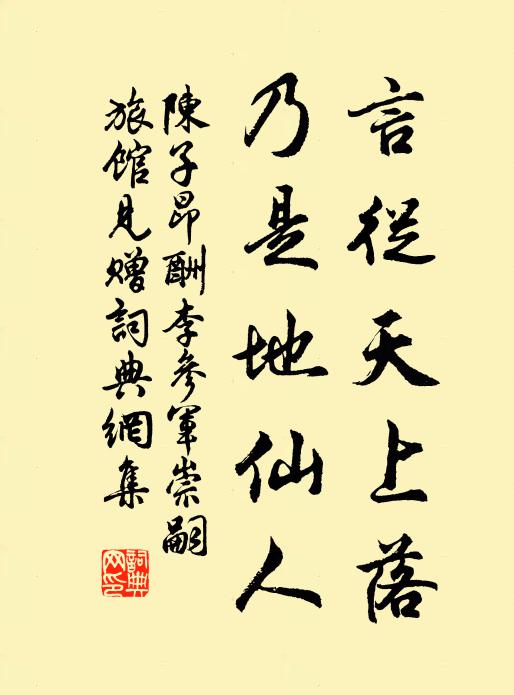 言從天上落
乃是地仙人
陳子昂酬李參軍崇嗣
旅館見贈詞典網集
詞典網印